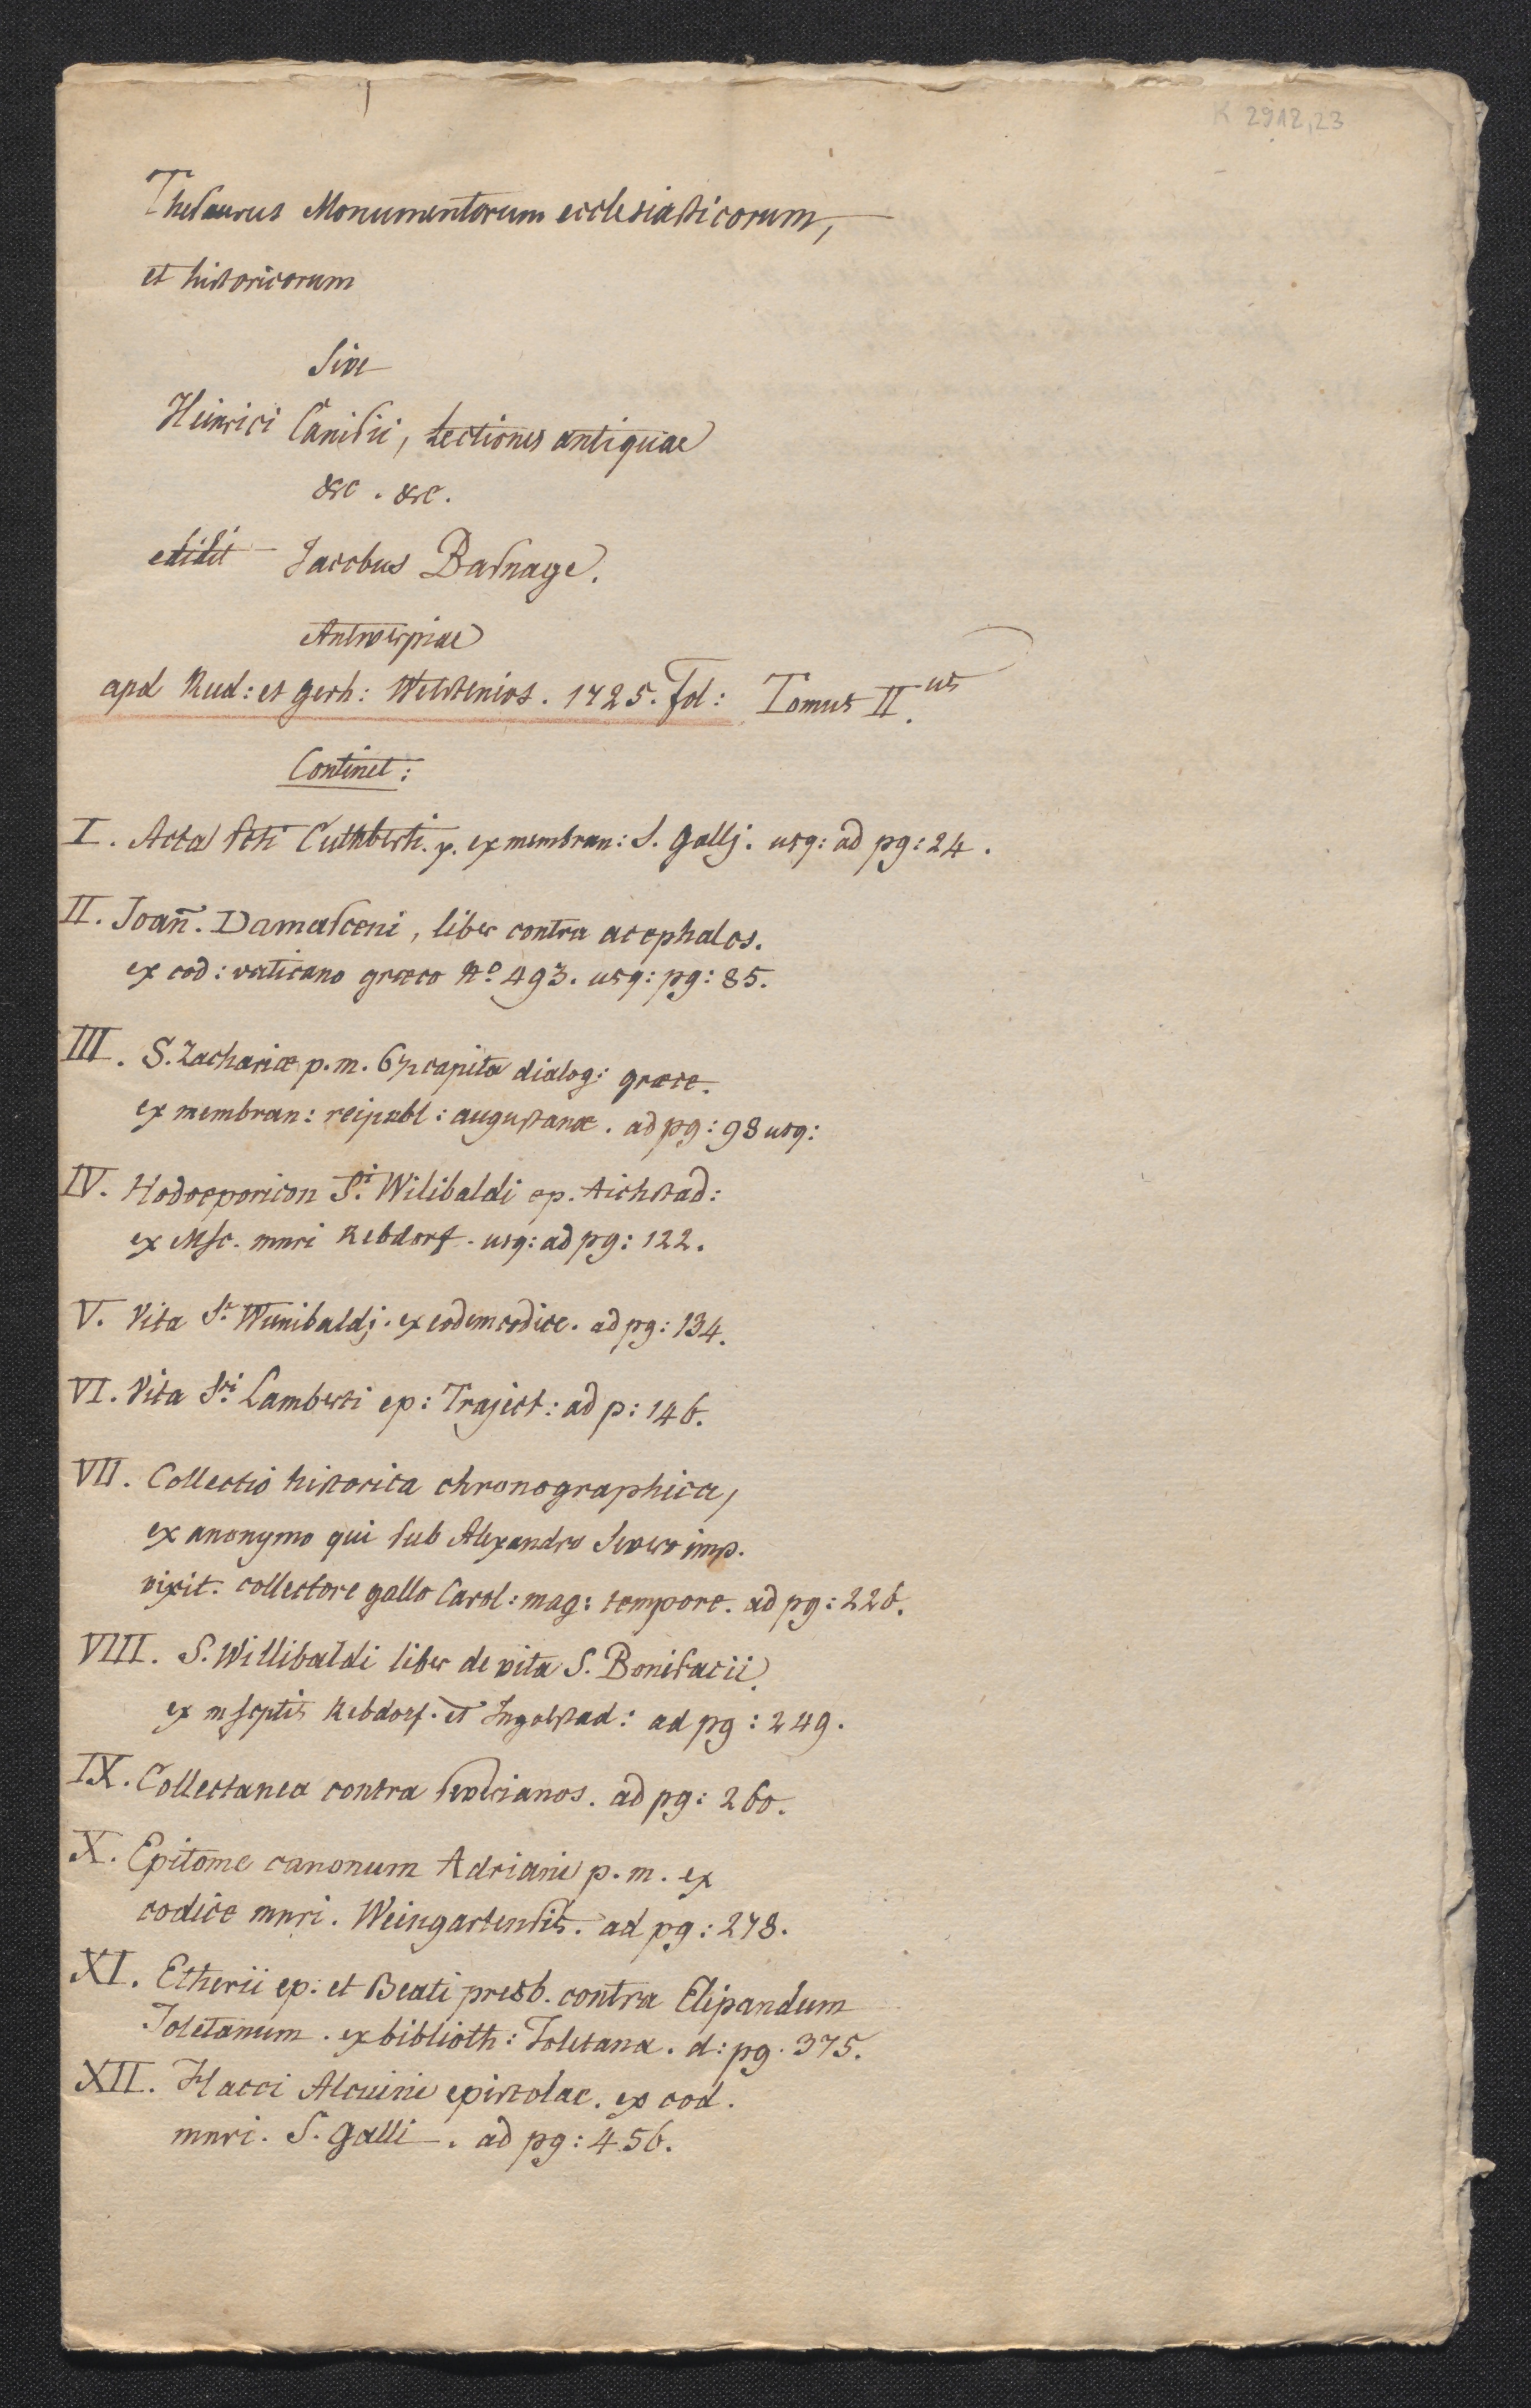 K 2912,23
Thesaurus Monumentorum ecclesiasticorum,
et historicorum
Sive
Heinrici Canisii, Lectiones antiquae
&c. &c.
edidit Jacobus Basnage.
Antwerpiae
apd Rud: et Gerh: Wetstenios. 1725. Fol: Tomus II.us
Continet:
I. Acta scti Cuthberti. p. ex membran: S. Gallj. usq: ad pg: 24.
II. Joan̄. Damasceni, liber contra acephalos.
ex cod: vaticano græco No. 493. usq: pg: 85.
III. S. Zachariæ p. m. capita dialog: græce.
ex membran: reipubl: augustanæ. ad pg: 98 usq:
IV. Hodoeporicon S.i Wilibaldi ep. Aichstad:
ex Msc. mnri Rebdorf. usq: ad pg: 122.
V. Vita S.i Wunibaldj. ex eodem codice. ad pg: 134.
VI. Vita S.ti Lamberti ep: Traject: ad p: 146.
VII. Collectio historica chronographica,
ex anonymo qui sub Alexandro Severo imp.
vixit. collectore gallo Carol: mag: tempore. ad pg: 226.
VIII. S. Willibaldi liber de vita S. Bonifacii.
ex mscptis Rebdorf. et Ingolstad: ad pg: 249.
IX. Collectanea contra severianos. ad pg: 260.
X. Epitome canonum Adriani p. m. ex
codice mnri. Weingartensis. ad pg: 278.
XI. Etherii ep: et Beati presb. contra Elipandum
Toletanum. ex biblioth: Toletana. d: pg. 375.
XII. Flacci Alcuini epistolae. ex cod.
mnri. S. Galli. ad pg: 456.